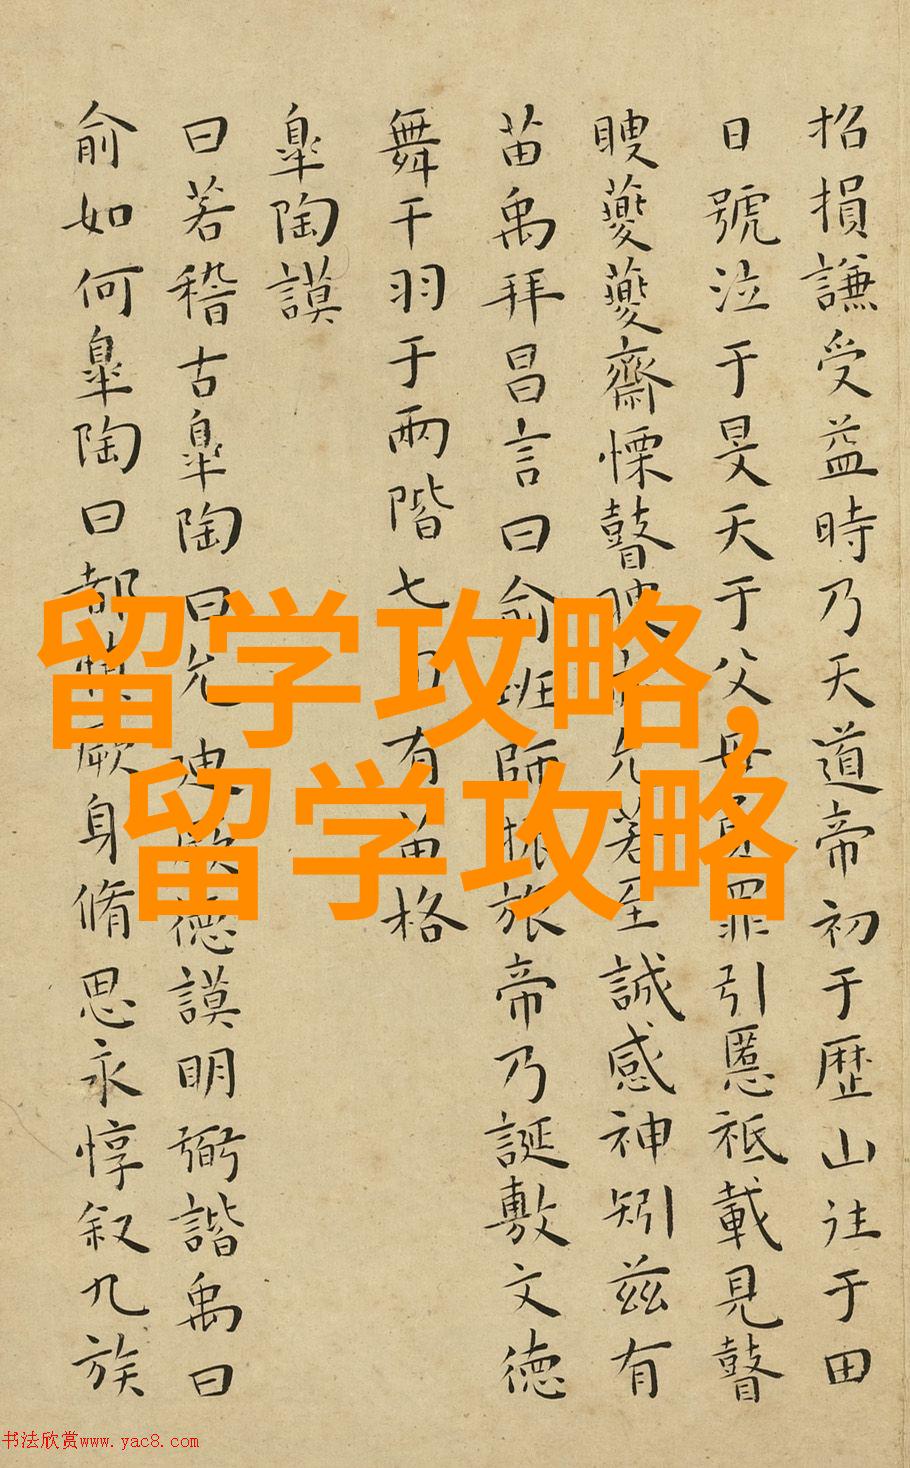 招損謙受益時乃天道帝初于歷山往于田
日號泣于旻天于父母負罪引慝祗載見瞽
瞍夔夔齋慄瞽瞍亦允若至誠感神矧茲有
苗禹拜昌言曰俞班師振旅帝乃誕敷文德
舞干羽于兩階七旬有苗格
皐陶謨
曰若稽古皐陶曰允迪厥德謨明弼諧禹曰
俞如何皐陶曰都慎厥身脩思永惇叙九族
留学攻略,
留学攻略
书法欣赏www.yac8.com